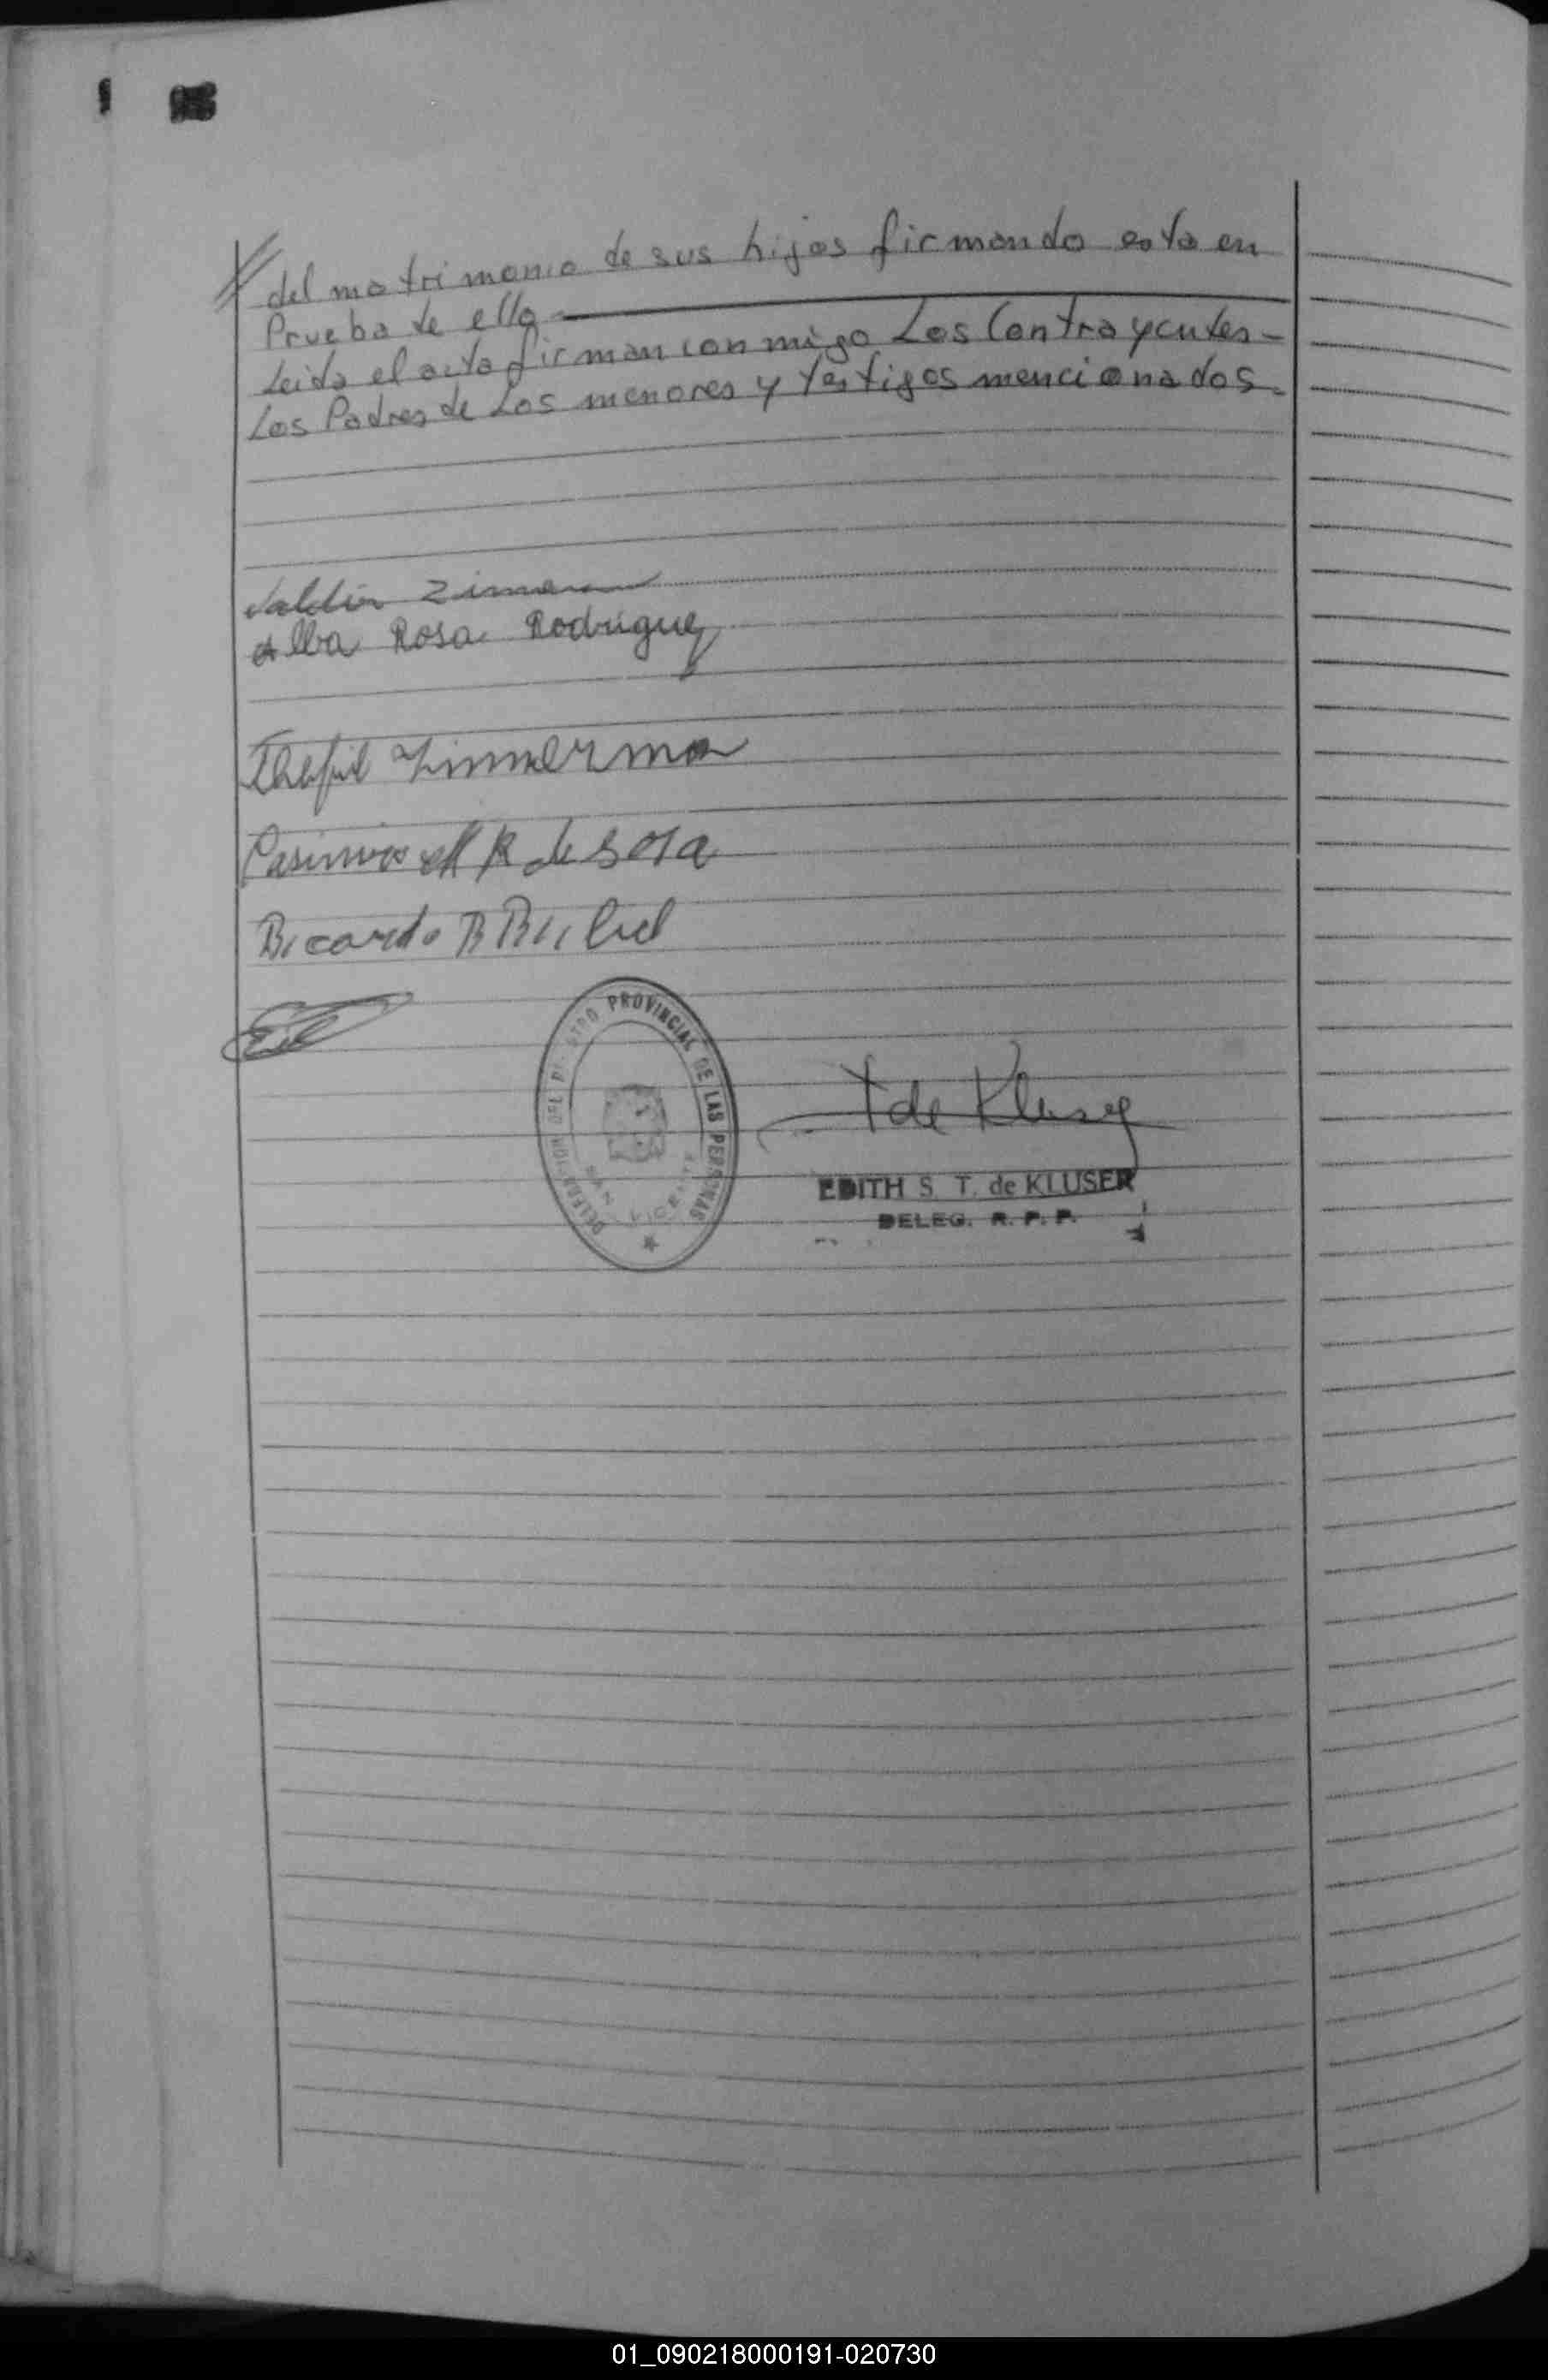 // del matrimonio de sus hijos firmando esta en
Prueba de ello.
Leida el acta firman conmigo Los Contrayentes-
Los Padres de Los menores y testigos mencionados.
Valdir Zimerman
Alba Rosa Rodriguez
Zimmerman
Casimira M R de Sosa
Ricardo B
PROVINCIAL DE LAS PERSONAS
SAN VICENTE
T de Kluser
EDITH S. T. de KLUSER
DELEG. R. P. P.
01_090218000191-020730